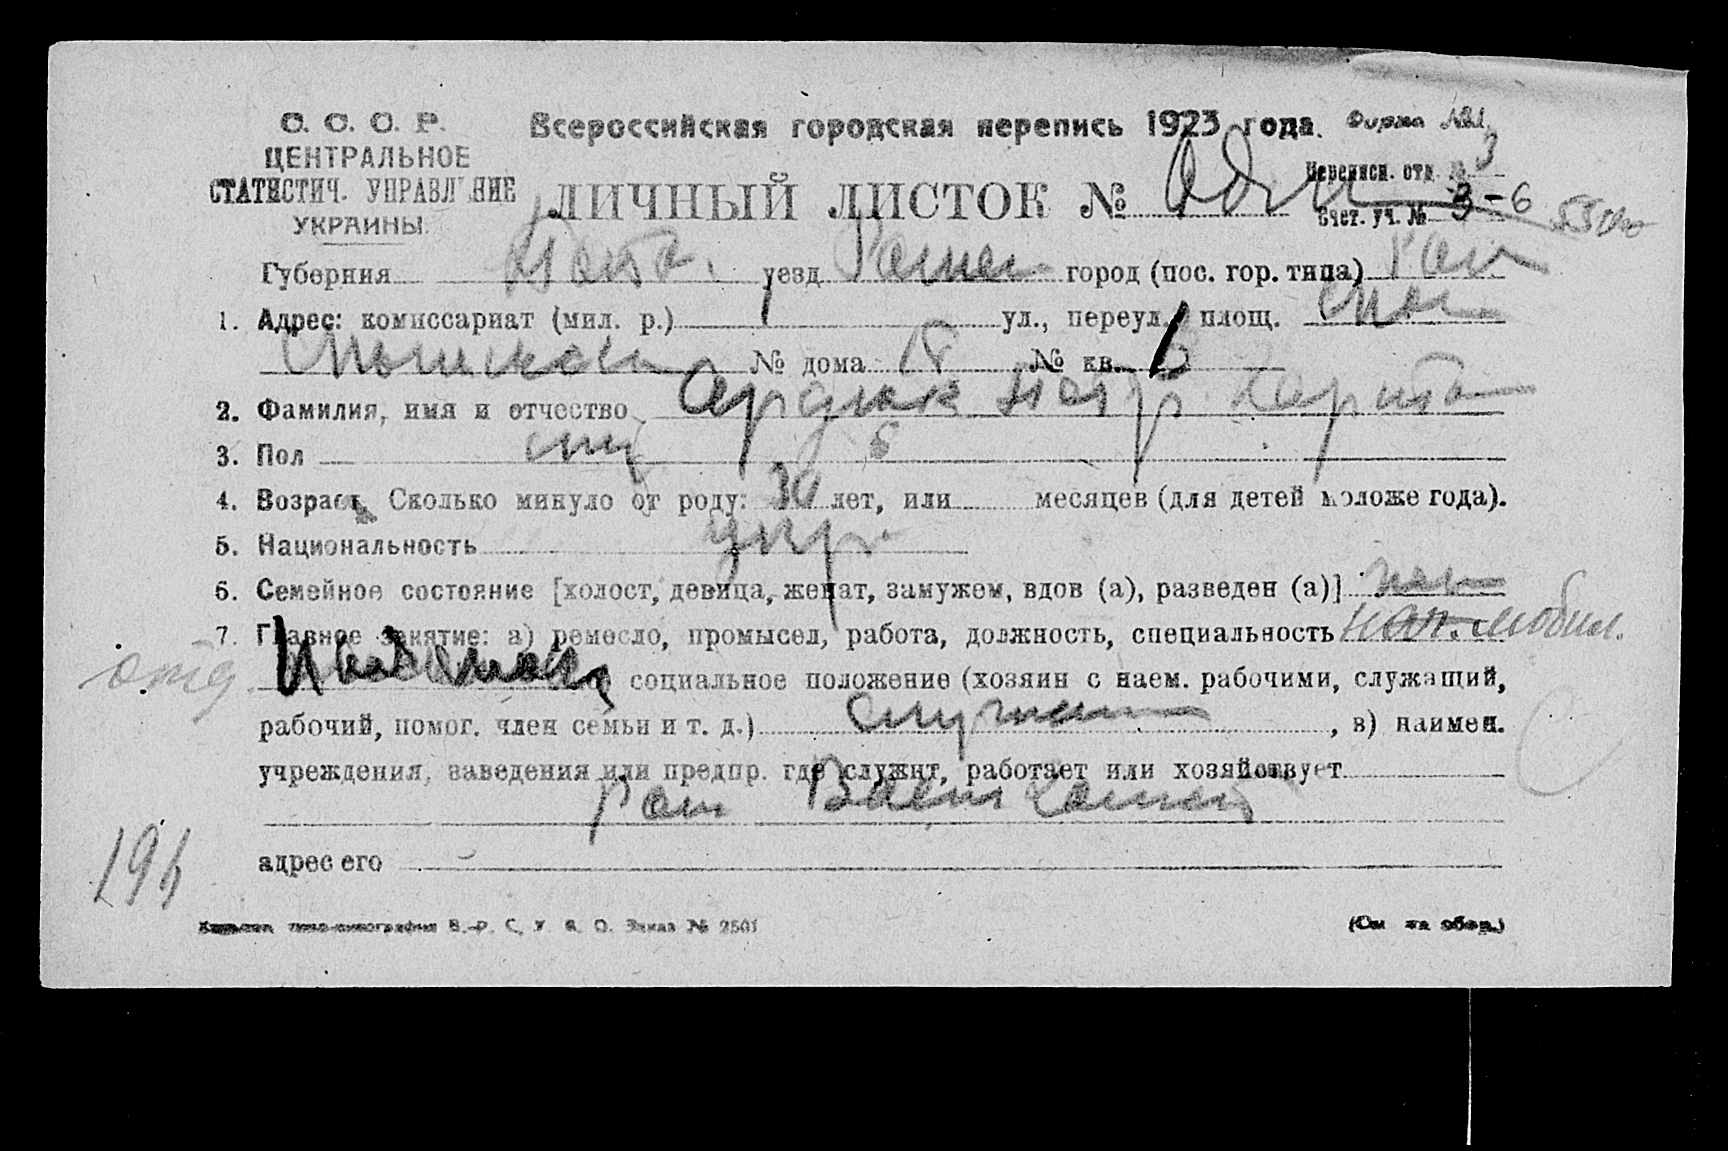 С. С. С. Р. Всероссийская городская перепись 1923 года. Форма №1
ЦЕНТРАЛЬНОЕ Переписн. отд. № 3
СТАТИСТИЧ. УПРАВЛЕНИЕ ЛИЧНЫЙ ЛИСТОК № Один Счет. уч. № 3-6
УКРАИНЫ.
Губерния Полт. уезд Ромен город (пос. гор. типа)
1. Адрес: комиссариат (мил. р.) ул., переул., площ.
№ дома 18 № кв.
2. Фамилия, имя и отчество Сердюк Петр Харит
3. Пол муж
4. Возраст. Сколько минуло от роду: 30 лет, или месяцев (для детей моложе года).
5. Национальность укр.
6. Семейное состояние [холост, девица, женат, замужем, вдов (а), разведен (а)] жен
7. Главное занятие: а) ремесло, промысел, работа, должность, специальность нач. мобил.
отд социальное положение (хозяин с наем. рабочими, служащий,
рабочий, помог. член семьи и т. д.) служащ , в) наимен.
учреждения, заведения или предпр. где служит, работает или хозяйствует
Ром Воен
адрес его
194
В.-Р. С. У. В. О. Заказ № 2501 (См на обор.)